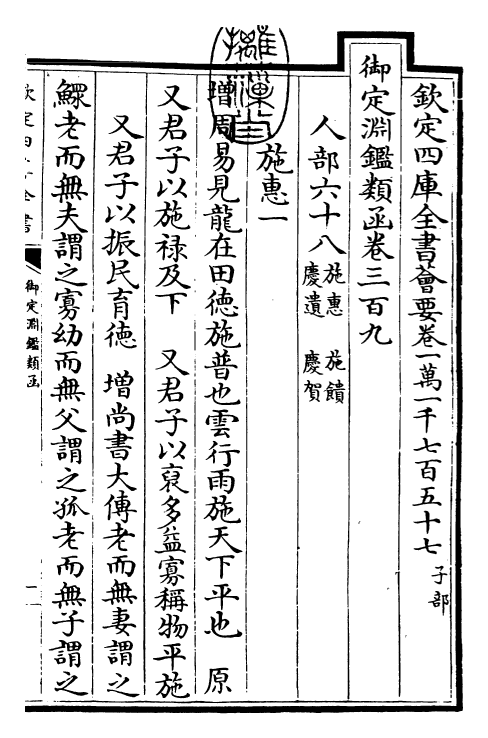 欽定四庫全書薈要卷一萬一千七百五十七 子部
御定淵鑑類函卷三百九
人部六十八 施惠 施饋 慶遺 慶賀
施惠一
增周易見龍在田德施普也雲行雨施天下平也 原
又君子以施禄及下 又君子以裒多益寡稱物平施
又君子以振民育德 增尚書大傳老而無妻謂之
鰥老而無夫謂之寡幼而無父謂之孤老而無子謂之
欽定四庫全書
御定淵鑑類函
一